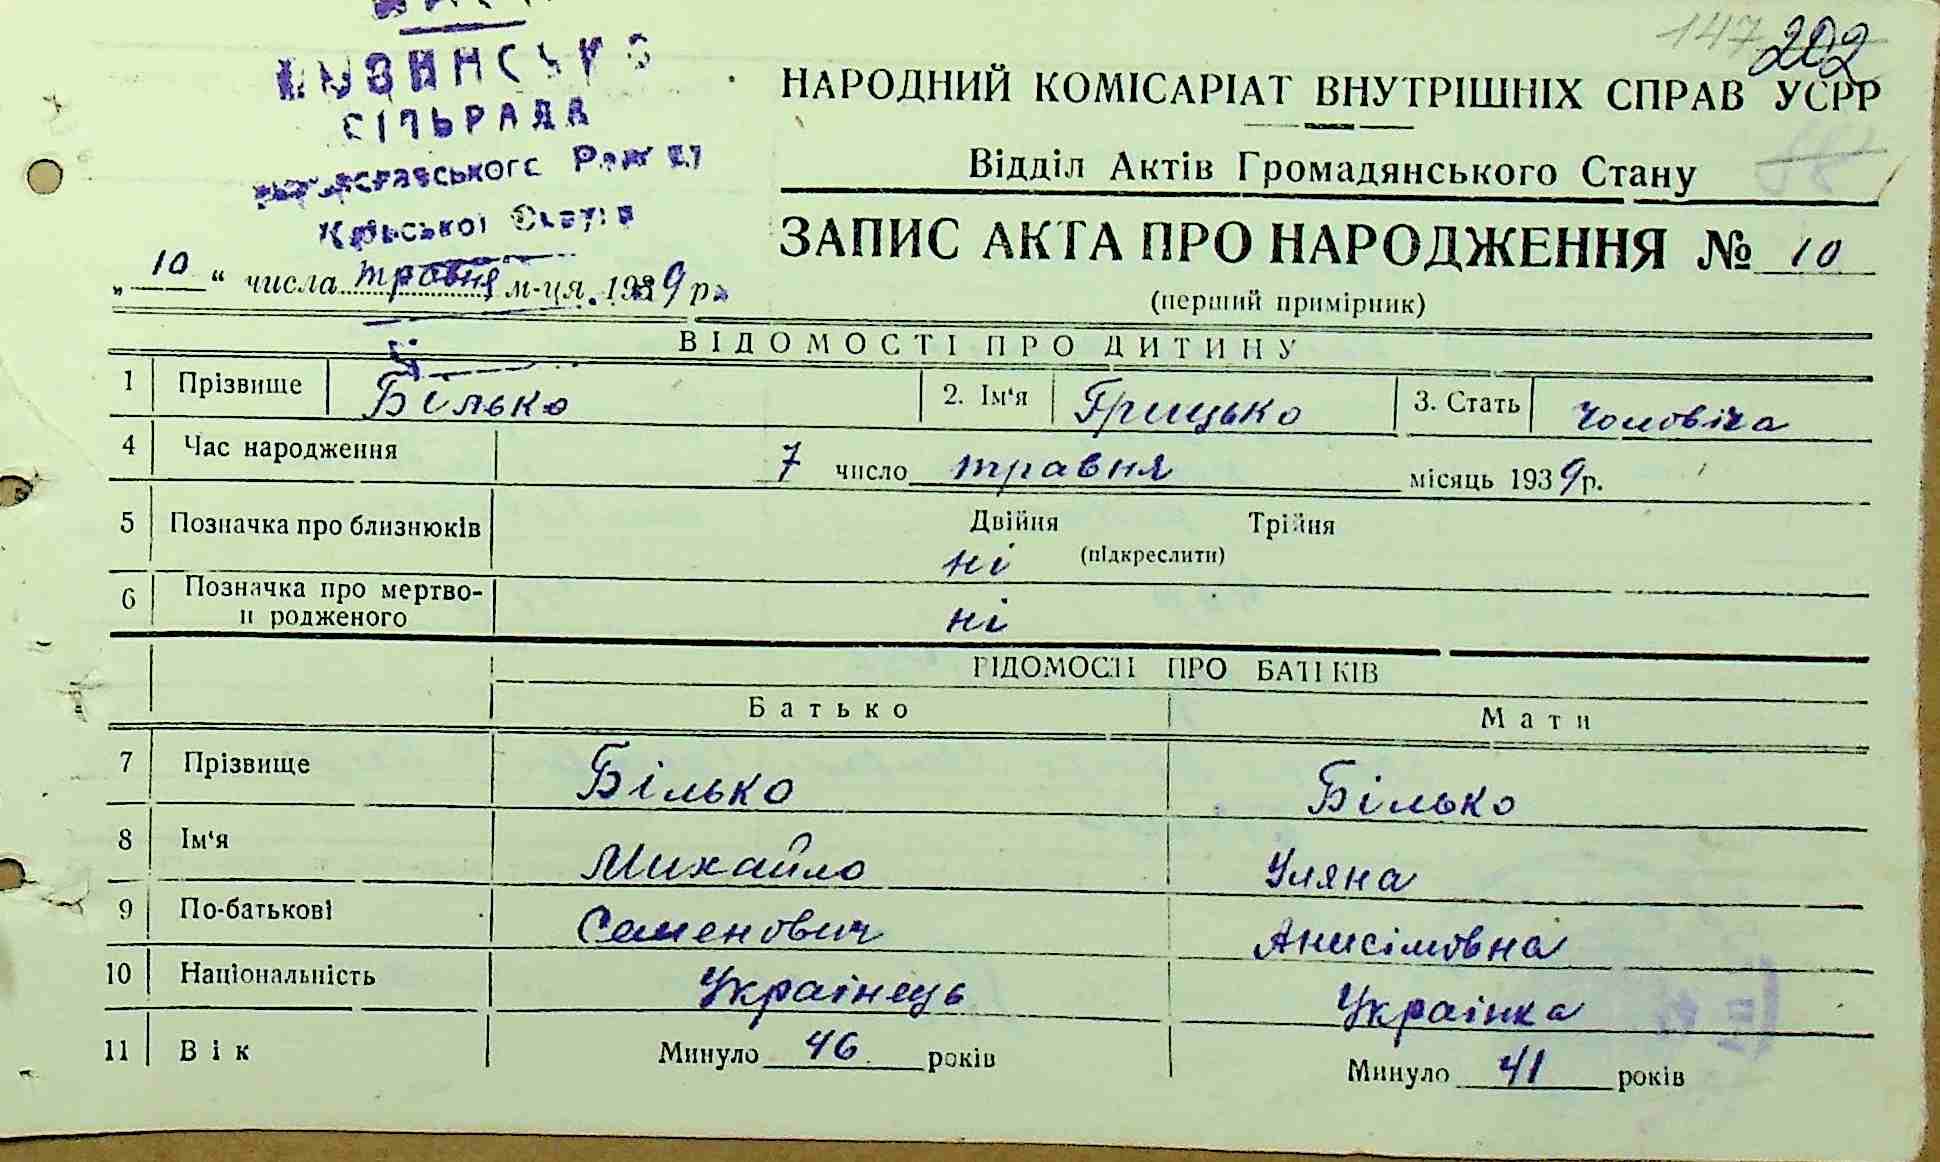 147 202
НАРОДНИЙ КОМІСАРІАТ ВНУТРІШНІХ СПРАВ УСРР
СІЛЬРАДА
Відділ Актів Громадянського Стану
Київської Області
ЗАПИС АКТА ПРО НАРОДЖЕННЯ № 10
„10“ числа травня м-ця 1939 р.
(перший примірник)
ВІДОМОСТІ ПРО ДИТИНУ
1 Прізвище Білько 2. Ім'я Грицько 3. Стать чоловіча
4 Час народження 7 число травня місяць 1939 р.
5 Позначка про близнюків Двійня Трійня
ні (підкреслити)
6 Позначка про мертво-
н родженого ні
ВІДОМОСТІ ПРО БАТЬКІВ
Батько Мати
7 Прізвище Білько Білько
8 Ім'я Михайло Уляна
9 По-батькові Семенович Анисімовна
10 Національність Українець Українка
11 Вік Минуло 46 років Минуло 41 років